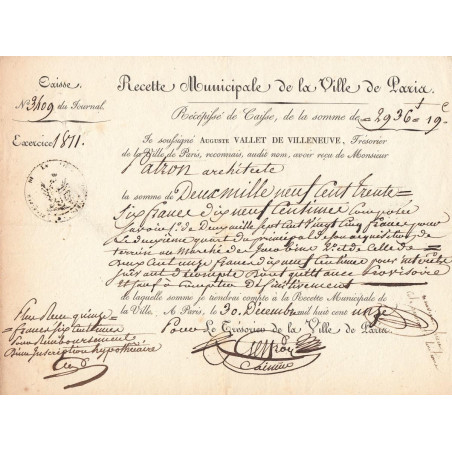 Caisse.
N.° 3409 du Journal.
Exercice 1811.
Recette Municipale de la Ville de Paris.
Récépissé de Caisse, de la somme de = 2936 f 19 c
Je soussigné AUGUSTE VALLET DE VILLENEUVE, Trésorier
de la Ville de Paris, reconnais, audit nom, avoir reçu de Monsieur
architecte
la somme de Deux mille neuf cent trente =
six francs dix neuf centimes composée
savoir 1.° de Deux mille sept cent vingt cinq francs pour
le deuxième quart du principal de son acquisition de
terrain au marché des Jacobins 2.° et celle de =
deux cent onze francs dix neuf centimes pour intérêts
suivant décompte dont quittance provisoire
et sauf à compter définitivement
de laquelle somme je rendrai compte à la Recette Municipale de
la Ville. A Paris, le 30 Décembre mil huit cent onze
Pour Le Trésorier de la Ville de Paris.
Plus Reçu quinze
francs six centimes
pour remboursement
d'une inscription hypothécaire